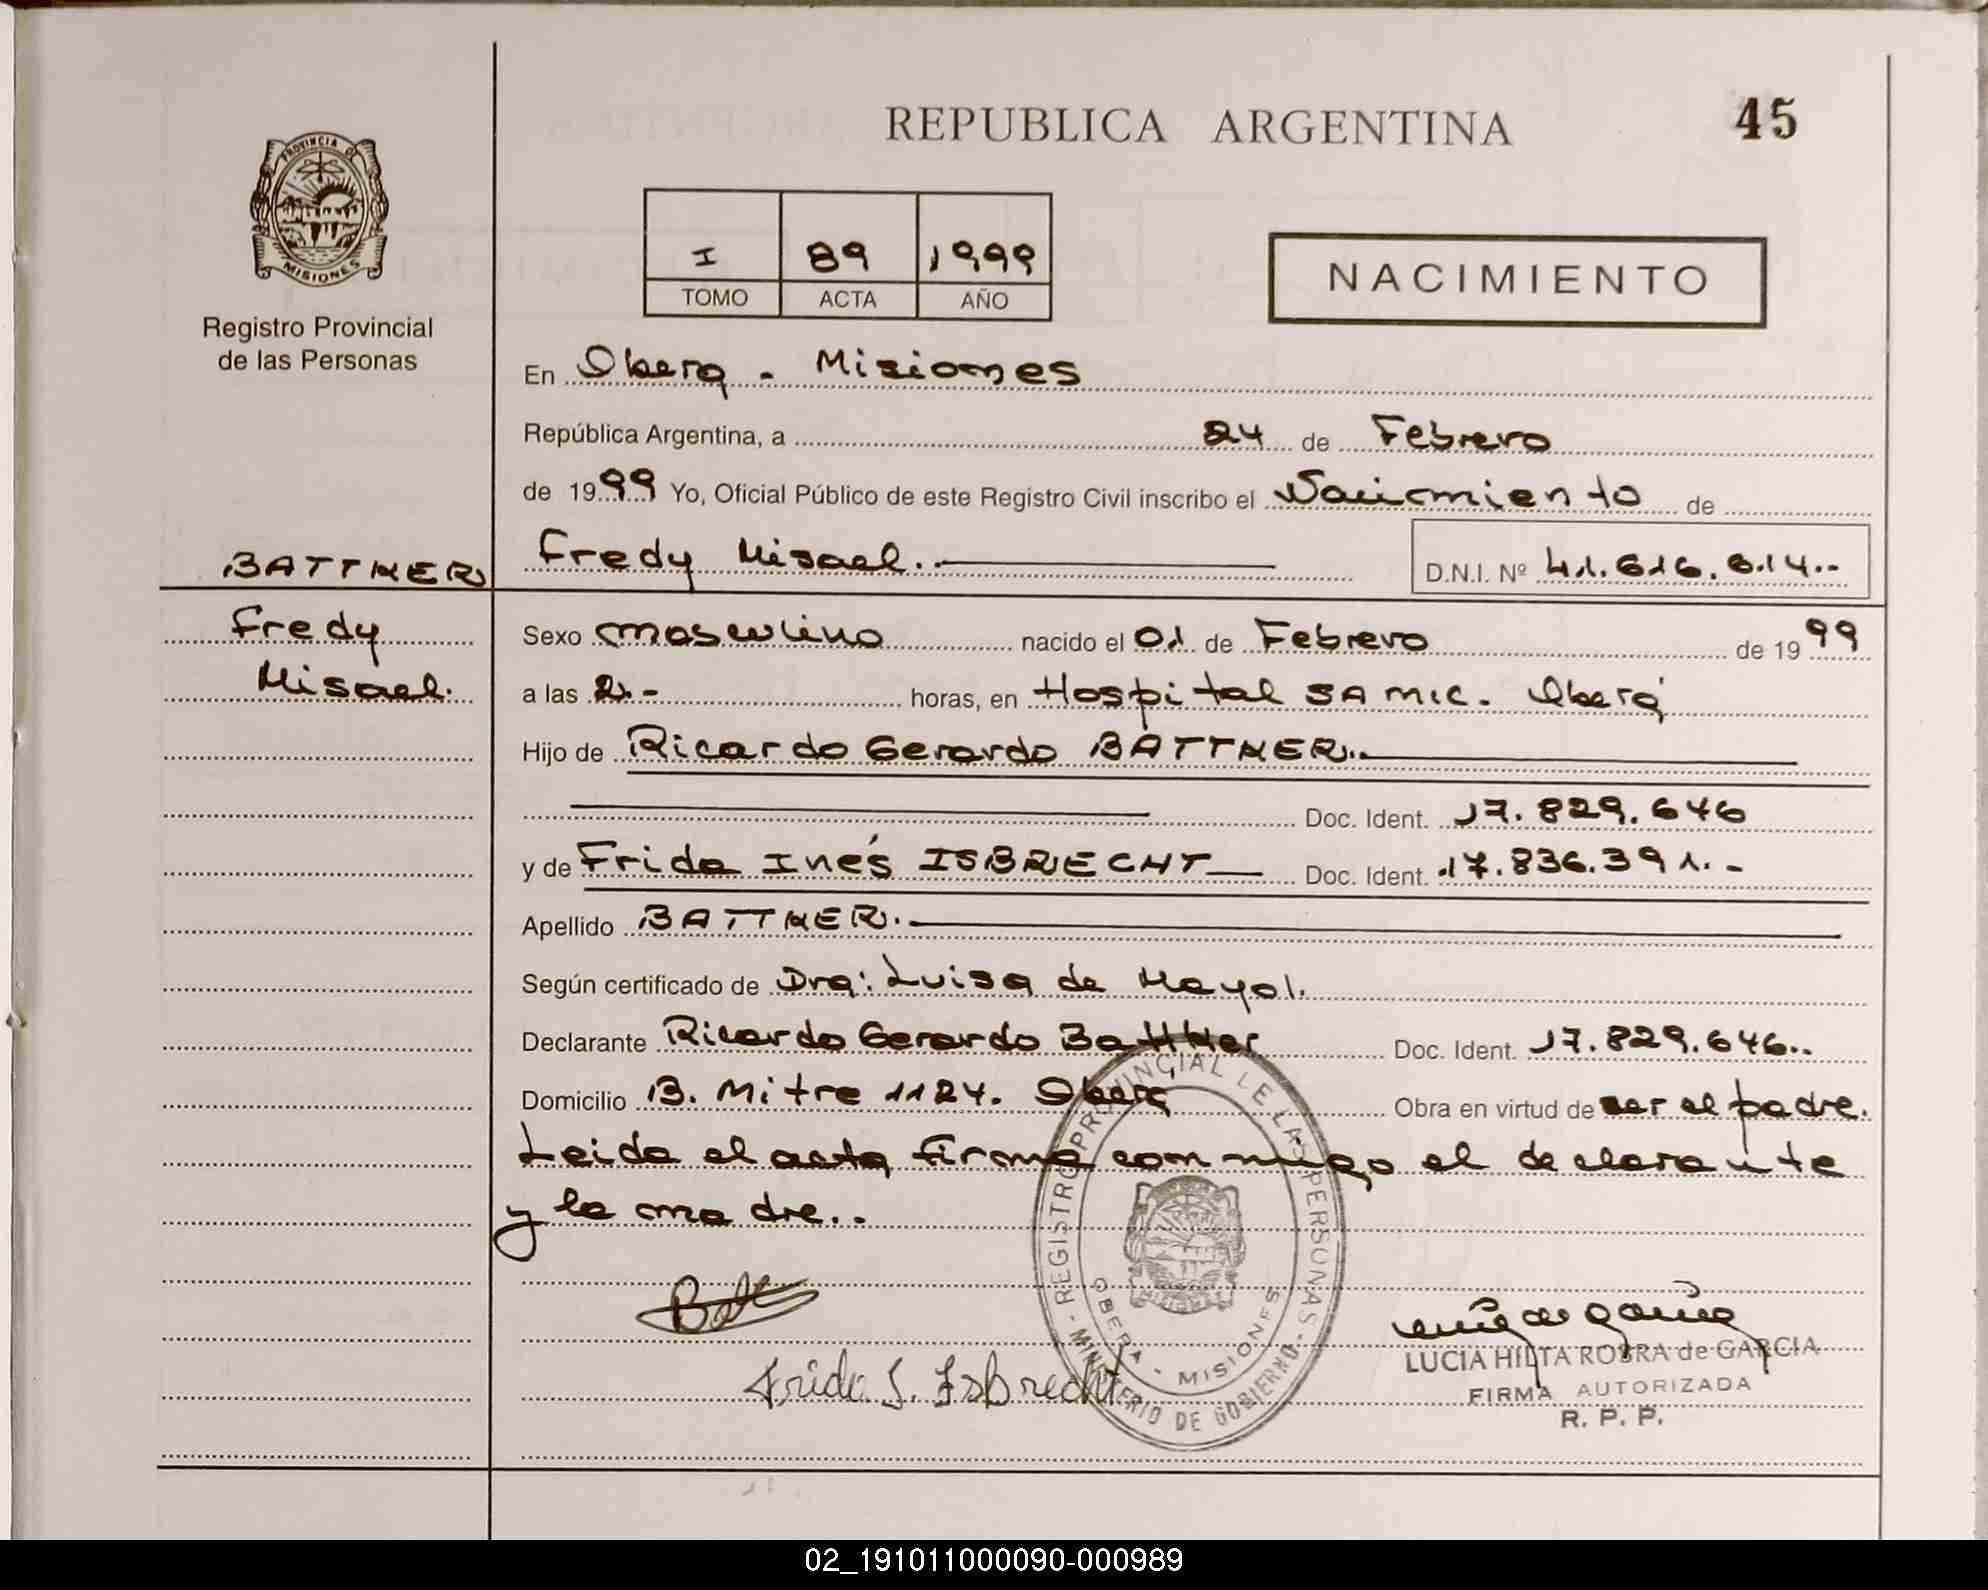 REPUBLICA ARGENTINA
45
PROVINCIA DE
MISIONES
Registro Provincial
de las Personas
I 89 1999
TOMO ACTA AÑO
NACIMIENTO
En Oberá - Misiones
República Argentina, a 24 de Febrero
de 1999 Yo, Oficial Público de este Registro Civil inscribo el Nacimiento de
BATTNER Fredy Misael.- D.N.I. Nº 41.616.814.-
Fredy
Misael.
Sexo masculino nacido el 01 de Febrero de 1999
a las 2.- horas, en Hospital SAMIC. Oberá
Hijo de Ricardo Gerardo BATTNER.-
Doc. Ident. 17.829.646
y de Frida Inés ISBRECHT Doc. Ident. 17.836.391.-
Apellido BATTNER.
Según certificado de Dra: Luisa de Mayol.
Declarante Ricardo Gerardo Battner Doc. Ident. 17.829.646.-
Domicilio B. Mitre 1124. Oberá Obra en virtud de ser el padre.
Leida el acta firma conmigo el declarante
y la madre..
REGISTRO PROVINCIAL DE LAS PERSONAS - MINISTERIO DE GOBIERNO -
OBERA - MISIONES
Frida I. Isbrecht
LUCIA HILTA ROBRA de GARCIA
FIRMA AUTORIZADA
R. P. P.
02_191011000090-000989